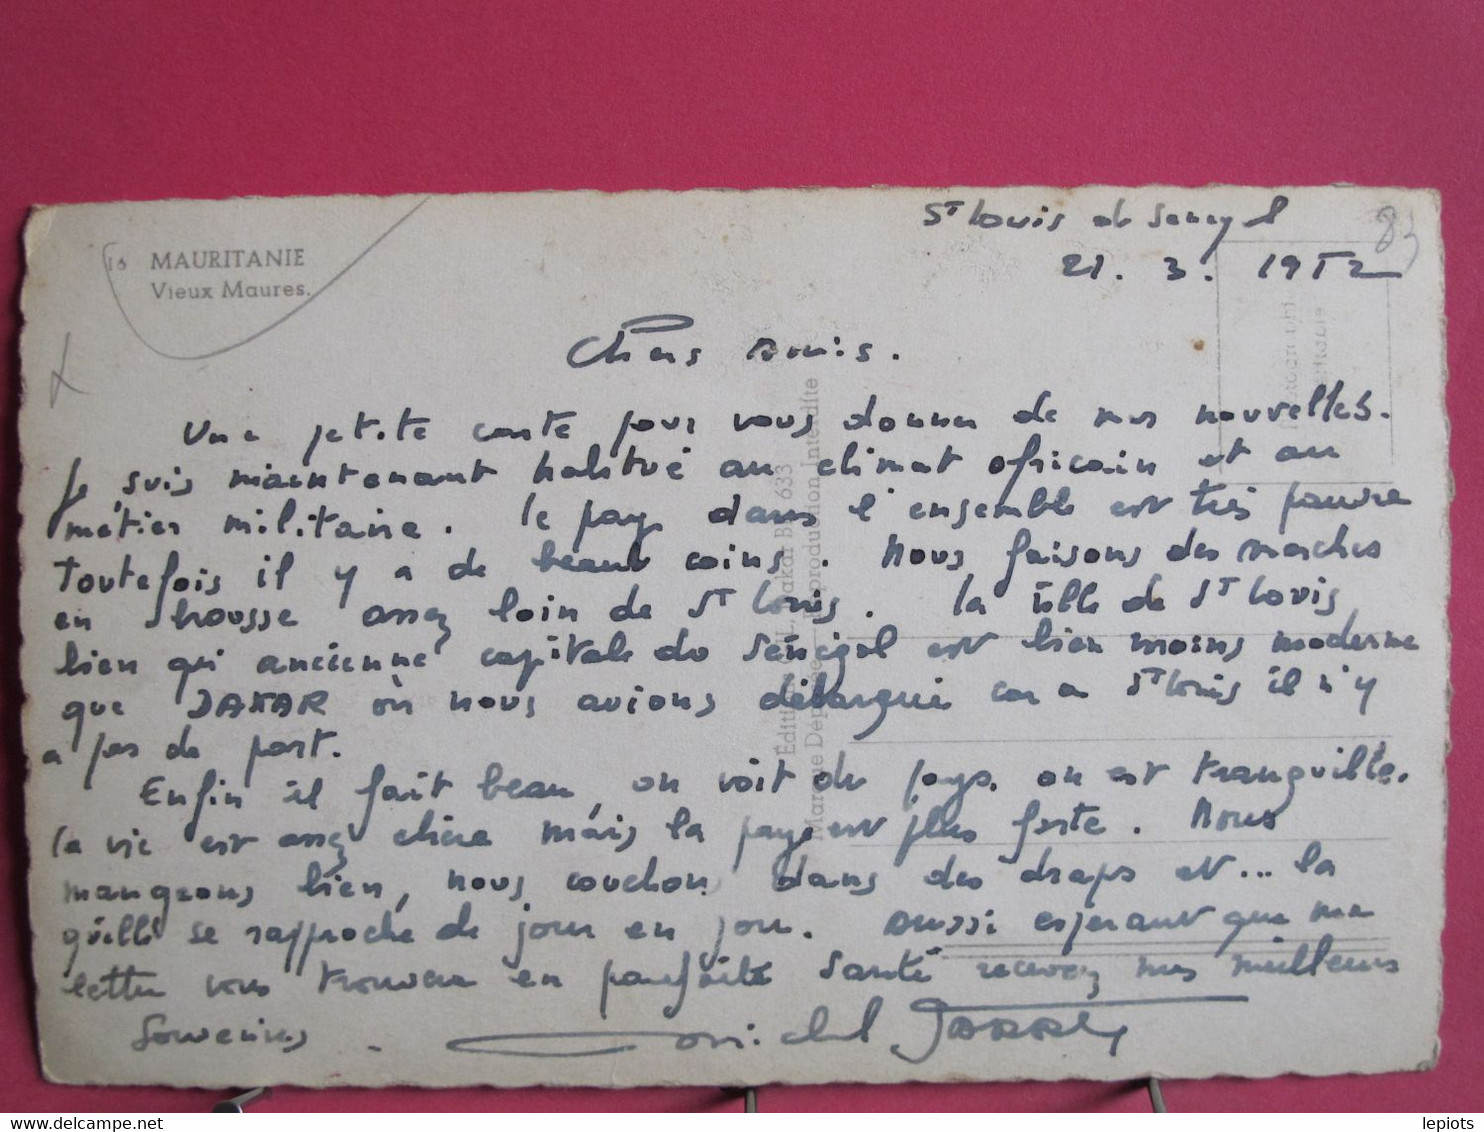 St Louis du Senegal
83
21. 3. 1952
16 MAURITANIE
Vieux Maures.
Chers amis.
Une petite carte pour vous donner de mes nouvelles.
Je suis maintenant habitué au climat africain et au
métier militaire. le pays dans l'ensemble est très pauvre
Toutefois il y a de beaux coins. Nous faisons des marches
en brousse assez loin de St Louis. la ville de St Louis
bien qu'ancienne capitale du Sénégal est bien moins moderne
que DAKAR où nous avions débarqué car a St Louis il n'y
a pas de port.
Enfin il fait beau, on voit du pays. on est tranquille.
la vie est assez chère mais la paye est plus forte. Nous
mangeons bien, nous couchons dans des draps et... la
quille se rapproche de jour en jour. Aussi esperant que ma
lettre vous trouvera en parfaite santé recevez mes meilleurs
Souvenirs.
Michel
Reproduction Interdite
lepiots